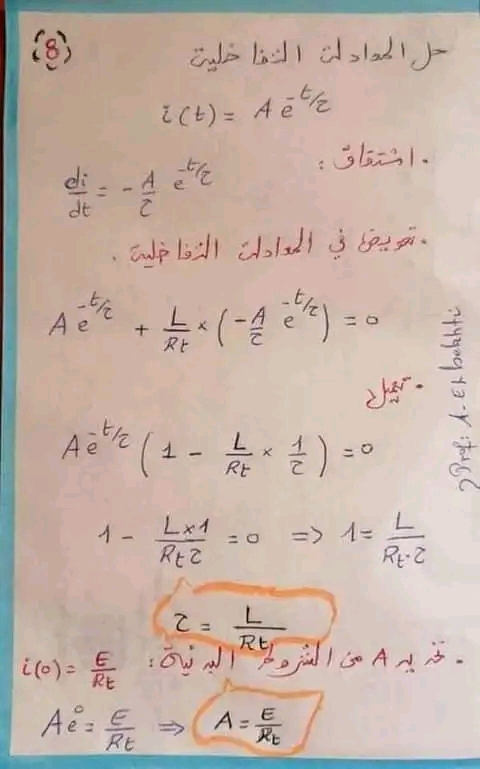 (8)
حل المعادلة التفاضلية
i(t) = A e^{-t/τ}
• اشتقاق :
di/dt = - A/τ e^{-t/τ}
• تعويض في المعادلة التفاضلية .
A e^{-t/τ} + L/Rt × (- A/τ e^{-t/τ}) = 0
• تعميل
A e^{-t/τ} (1 - L/Rt × 1/τ) = 0
1 - L×1/Rt τ = 0 => 1 = L/Rt·τ
τ = L/Rt
• تحديد A من الشروط البدئية : i(0) = E/Rt
A e^0 = E/Rt => A = E/Rt
Prof: A-El bekhti